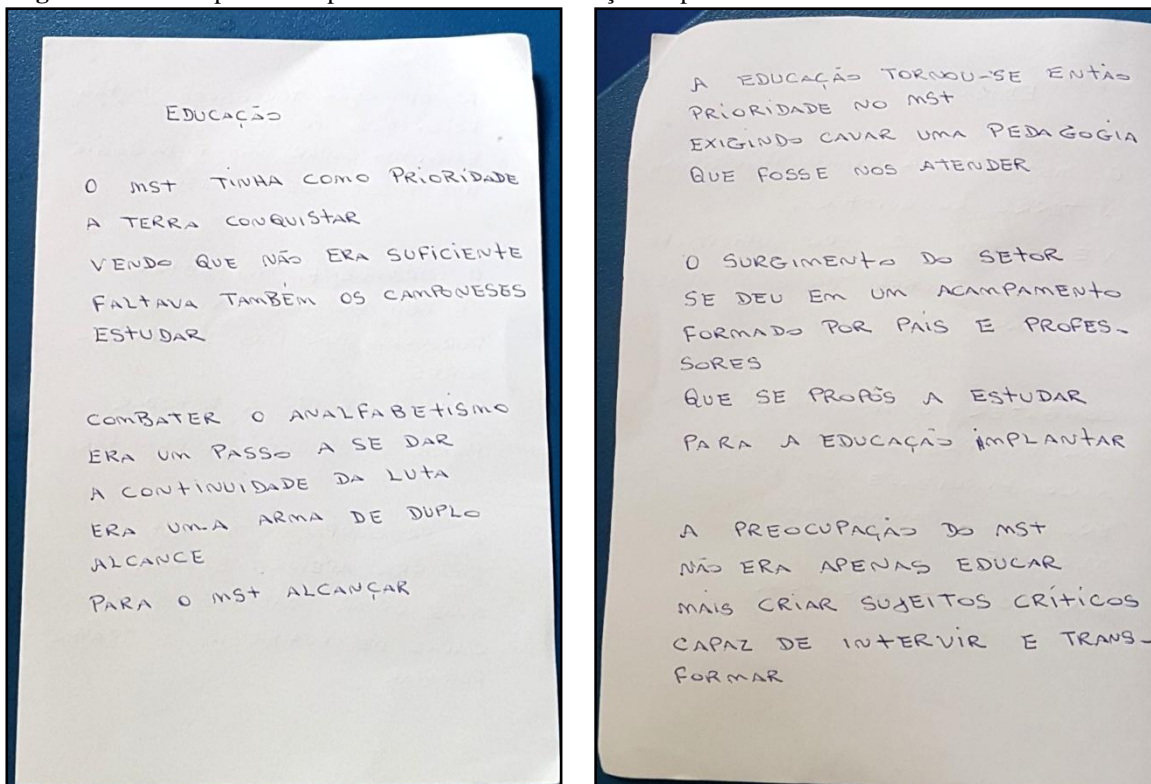 EDUCAÇÃO
O MST TINHA COMO PRIORIDADE
A TERRA CONQUISTAR
VENDO QUE NÃO ERA SUFICIENTE
FALTAVA TAMBÉM OS CAMPONESES
ESTUDAR
COMBATER O ANALFABETISMO
ERA UM PASSO A SE DAR
A CONTINUIDADE DA LUTA
ERA UMA ARMA DE DUPLO
ALCANCE
PARA O MST ALCANÇAR
A EDUCAÇÃO TORNOU-SE ENTÃO
PRIORIDADE NO MST
EXIGINDO CAVAR UMA PEDAGOGIA
QUE FOSSE NOS ATENDER
O SURGIMENTO DO SETOR
SE DEU EM UM ACAMPAMENTO
FORMADO POR PAIS E PROFES-
SORES
QUE SE PROPÔS A ESTUDAR
PARA A EDUCAÇÃO IMPLANTAR
A PREOCUPAÇÃO DO MST
NÃO ERA APENAS EDUCAR
MAIS CRIAR SUJEITOS CRÍTICOS
CAPAZ DE INTERVIR E TRANS-
FORMAR